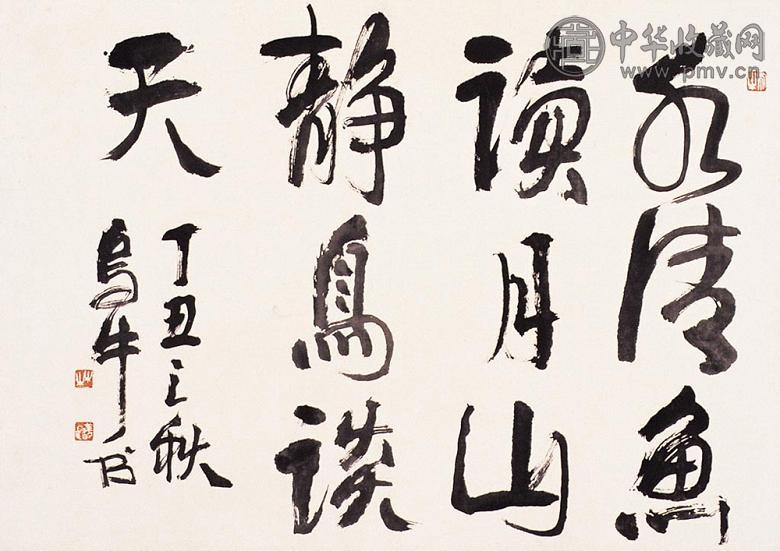 水清魚
讀月山
靜鳥談
天
丁丑之秋
烏牛书
中华收藏网
www.pmv.cn